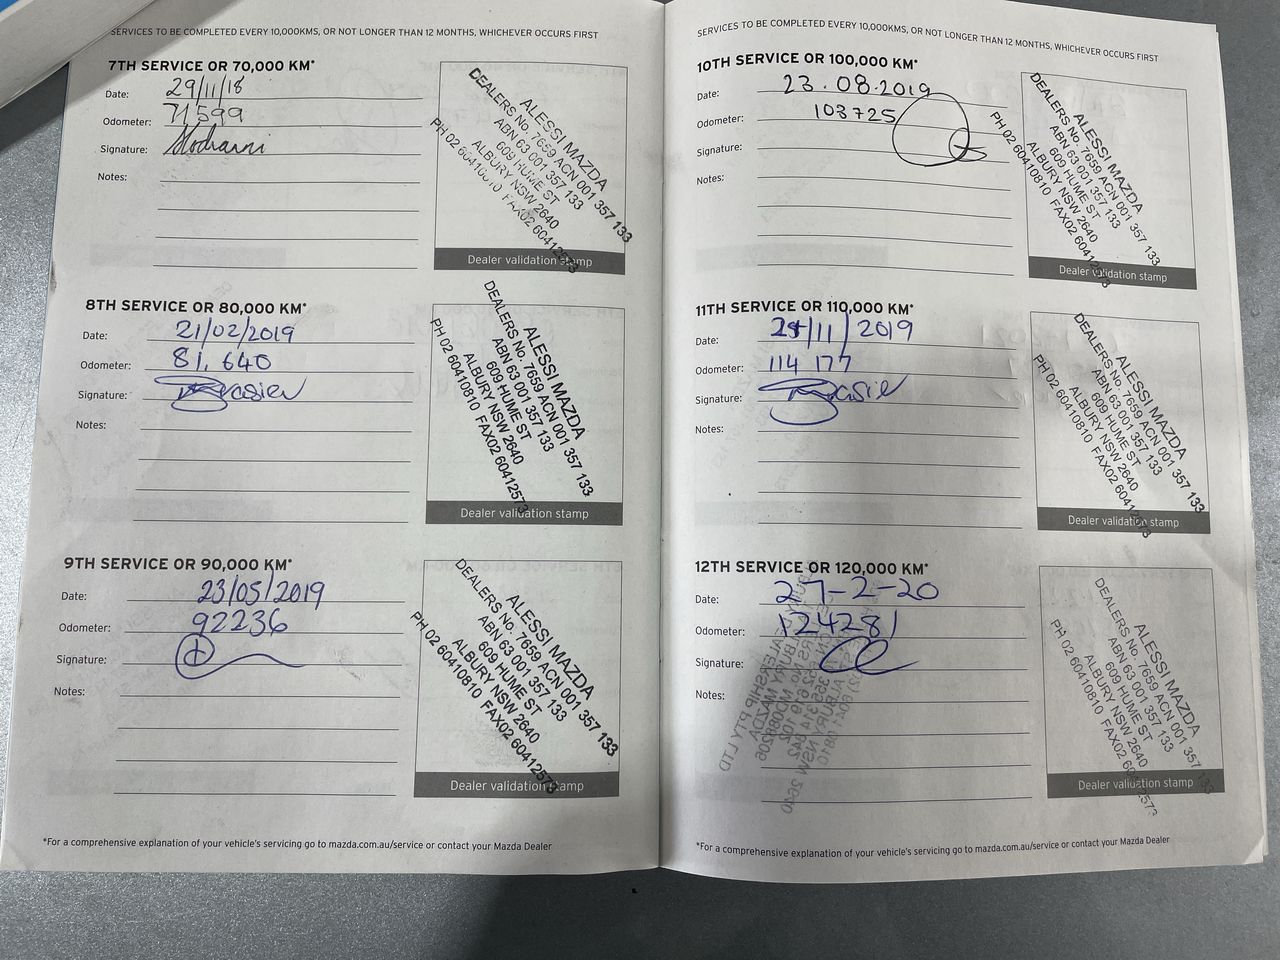 SERVICES TO BE COMPLETED EVERY 10,000KMS, OR NOT LONGER THAN 12 MONTHS, WHICHEVER OCCURS FIRST
7TH SERVICE OR 70,000 KM*
Date: 29/11/18
Odometer: 71599
Signature:
Notes:
ALESSI MAZDA
DEALERS No. 7659 ACN 001 357 133
ABN 63 001 357 133
609 HUME ST
ALBURY NSW 2640
PH 02 60410810 FAX02 60412573
Dealer validation stamp
8TH SERVICE OR 80,000 KM*
Date: 21/02/2019
Odometer: 81,640
Signature:
Notes:
ALESSI MAZDA
DEALERS No. 7659 ACN 001 357 133
ABN 63 001 357 133
609 HUME ST
ALBURY NSW 2640
PH 02 60410810 FAX02 60412573
Dealer validation stamp
9TH SERVICE OR 90,000 KM*
Date: 23/05/2019
Odometer: 92236
Signature:
Notes:
ALESSI MAZDA
DEALERS No. 7659 ACN 001 357 133
ABN 63 001 357 133
609 HUME ST
ALBURY NSW 2640
PH 02 60410810 FAX02 60412573
Dealer validation stamp
*For a comprehensive explanation of your vehicle's servicing go to mazda.com.au/service or contact your Mazda Dealer
SERVICES TO BE COMPLETED EVERY 10,000KMS, OR NOT LONGER THAN 12 MONTHS, WHICHEVER OCCURS FIRST
10TH SERVICE OR 100,000 KM*
Date: 23.08.2019
Odometer: 103725
Signature:
Notes:
ALESSI MAZDA
DEALERS No. 7659 ACN 001 357 133
ABN 63 001 357 133
609 HUME ST
ALBURY NSW 2640
PH 02 60410810 FAX02 60412573
Dealer validation stamp
11TH SERVICE OR 110,000 KM*
Date: /11/2019
Odometer: 114 177
Signature:
Notes:
ALESSI MAZDA
DEALERS No. 7659 ACN 001 357 133
ABN 63 001 357 133
609 HUME ST
ALBURY NSW 2640
PH 02 60410810 FAX02 60412573
Dealer validation stamp
12TH SERVICE OR 120,000 KM*
Date: 27-2-20
Odometer: 124281
Signature:
Notes:
ALESSI MAZDA
DEALERS No. 7659 ACN 001 357 133
ABN 63 001 357 133
609 HUME ST
ALBURY NSW 2640
PH 02 60410810 FAX02 60412573
Dealer validation stamp
*For a comprehensive explanation of your vehicle's servicing go to mazda.com.au/service or contact your Mazda Dealer